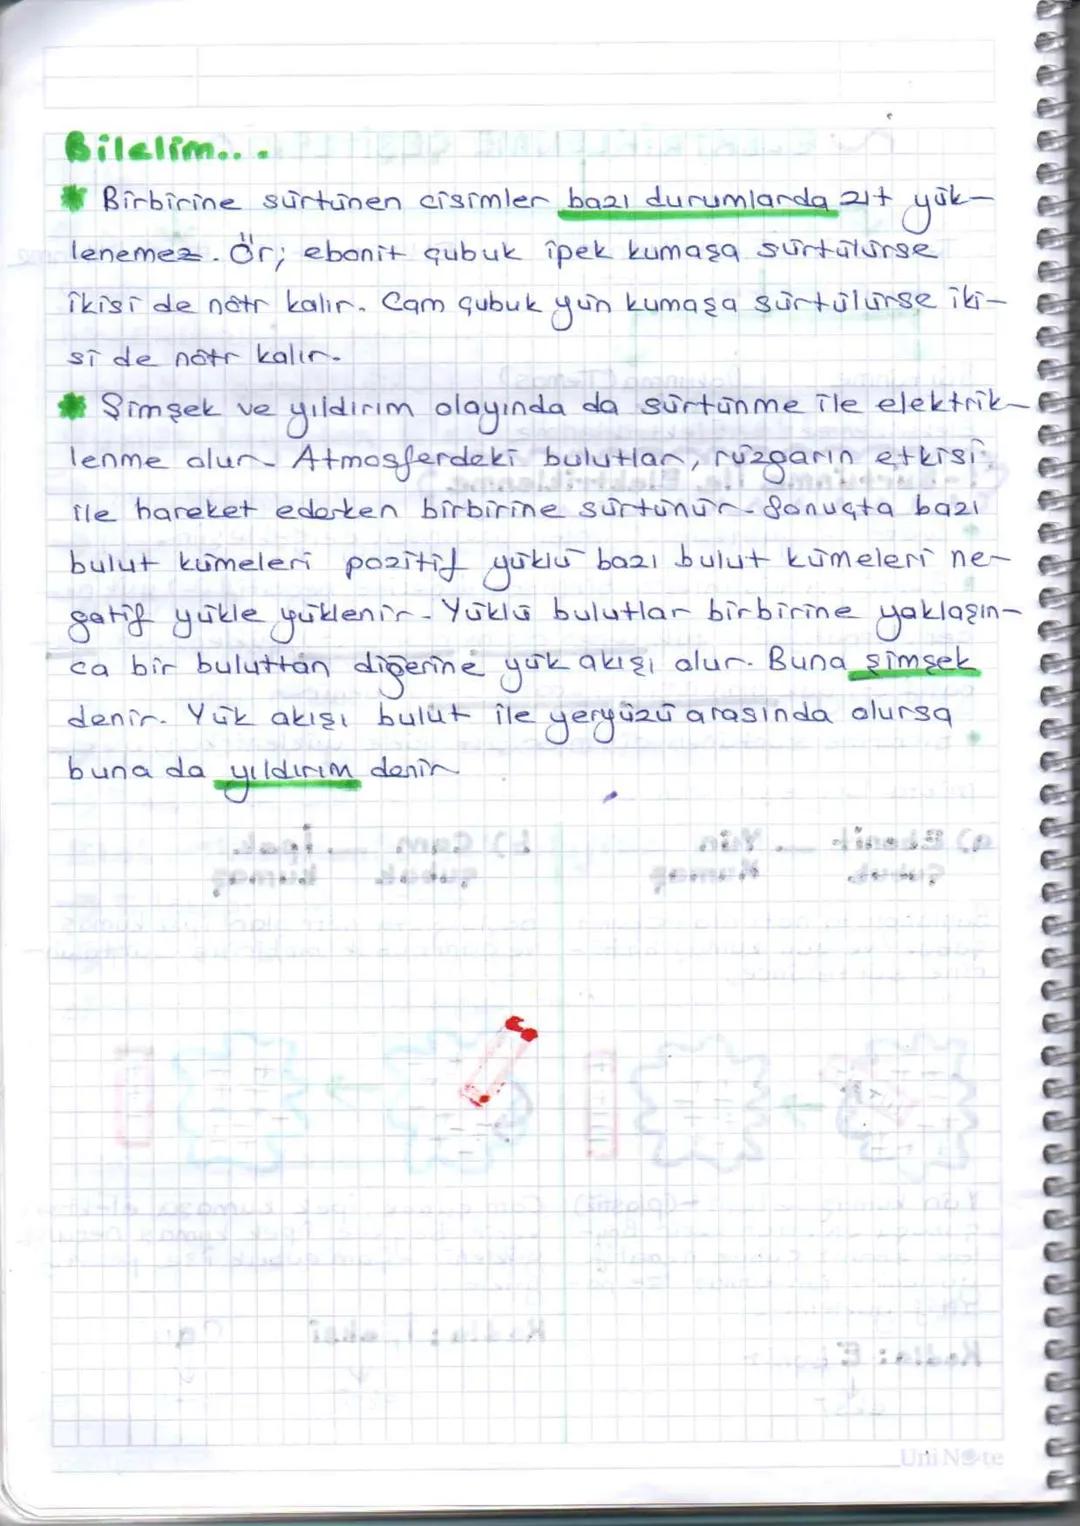 Bilelim...
* Birbirine sürtünen cisimler bazı durumlarda zıt yük-
lenemez. Ör; ebonit çubuk ipek kumaşa sürtülürse
ikisi de nötr kalır. Cam çubuk yün kumaşa sürtülürse iki-
si de nötr kalır.
* Şimşek ve yıldırım olayında da sürtünme ile elektrik-
lenme olur. Atmosferdeki bulutlar, rüzgarın etkisi
ile hareket ederken birbirine sürtünür. Sonuçta bazı
bulut kümeleri pozitif yüklü bazı bulut kümeleri ne-
gatif yükle yüklenir. Yüklü bulutlar birbirine yaklaşın-
ca bir buluttan diğerine yük akışı olur. Buna şimşek
denir. Yük akışı bulut ile yeryüzü arasında olursa
buna da yıldırım denir
UniNote